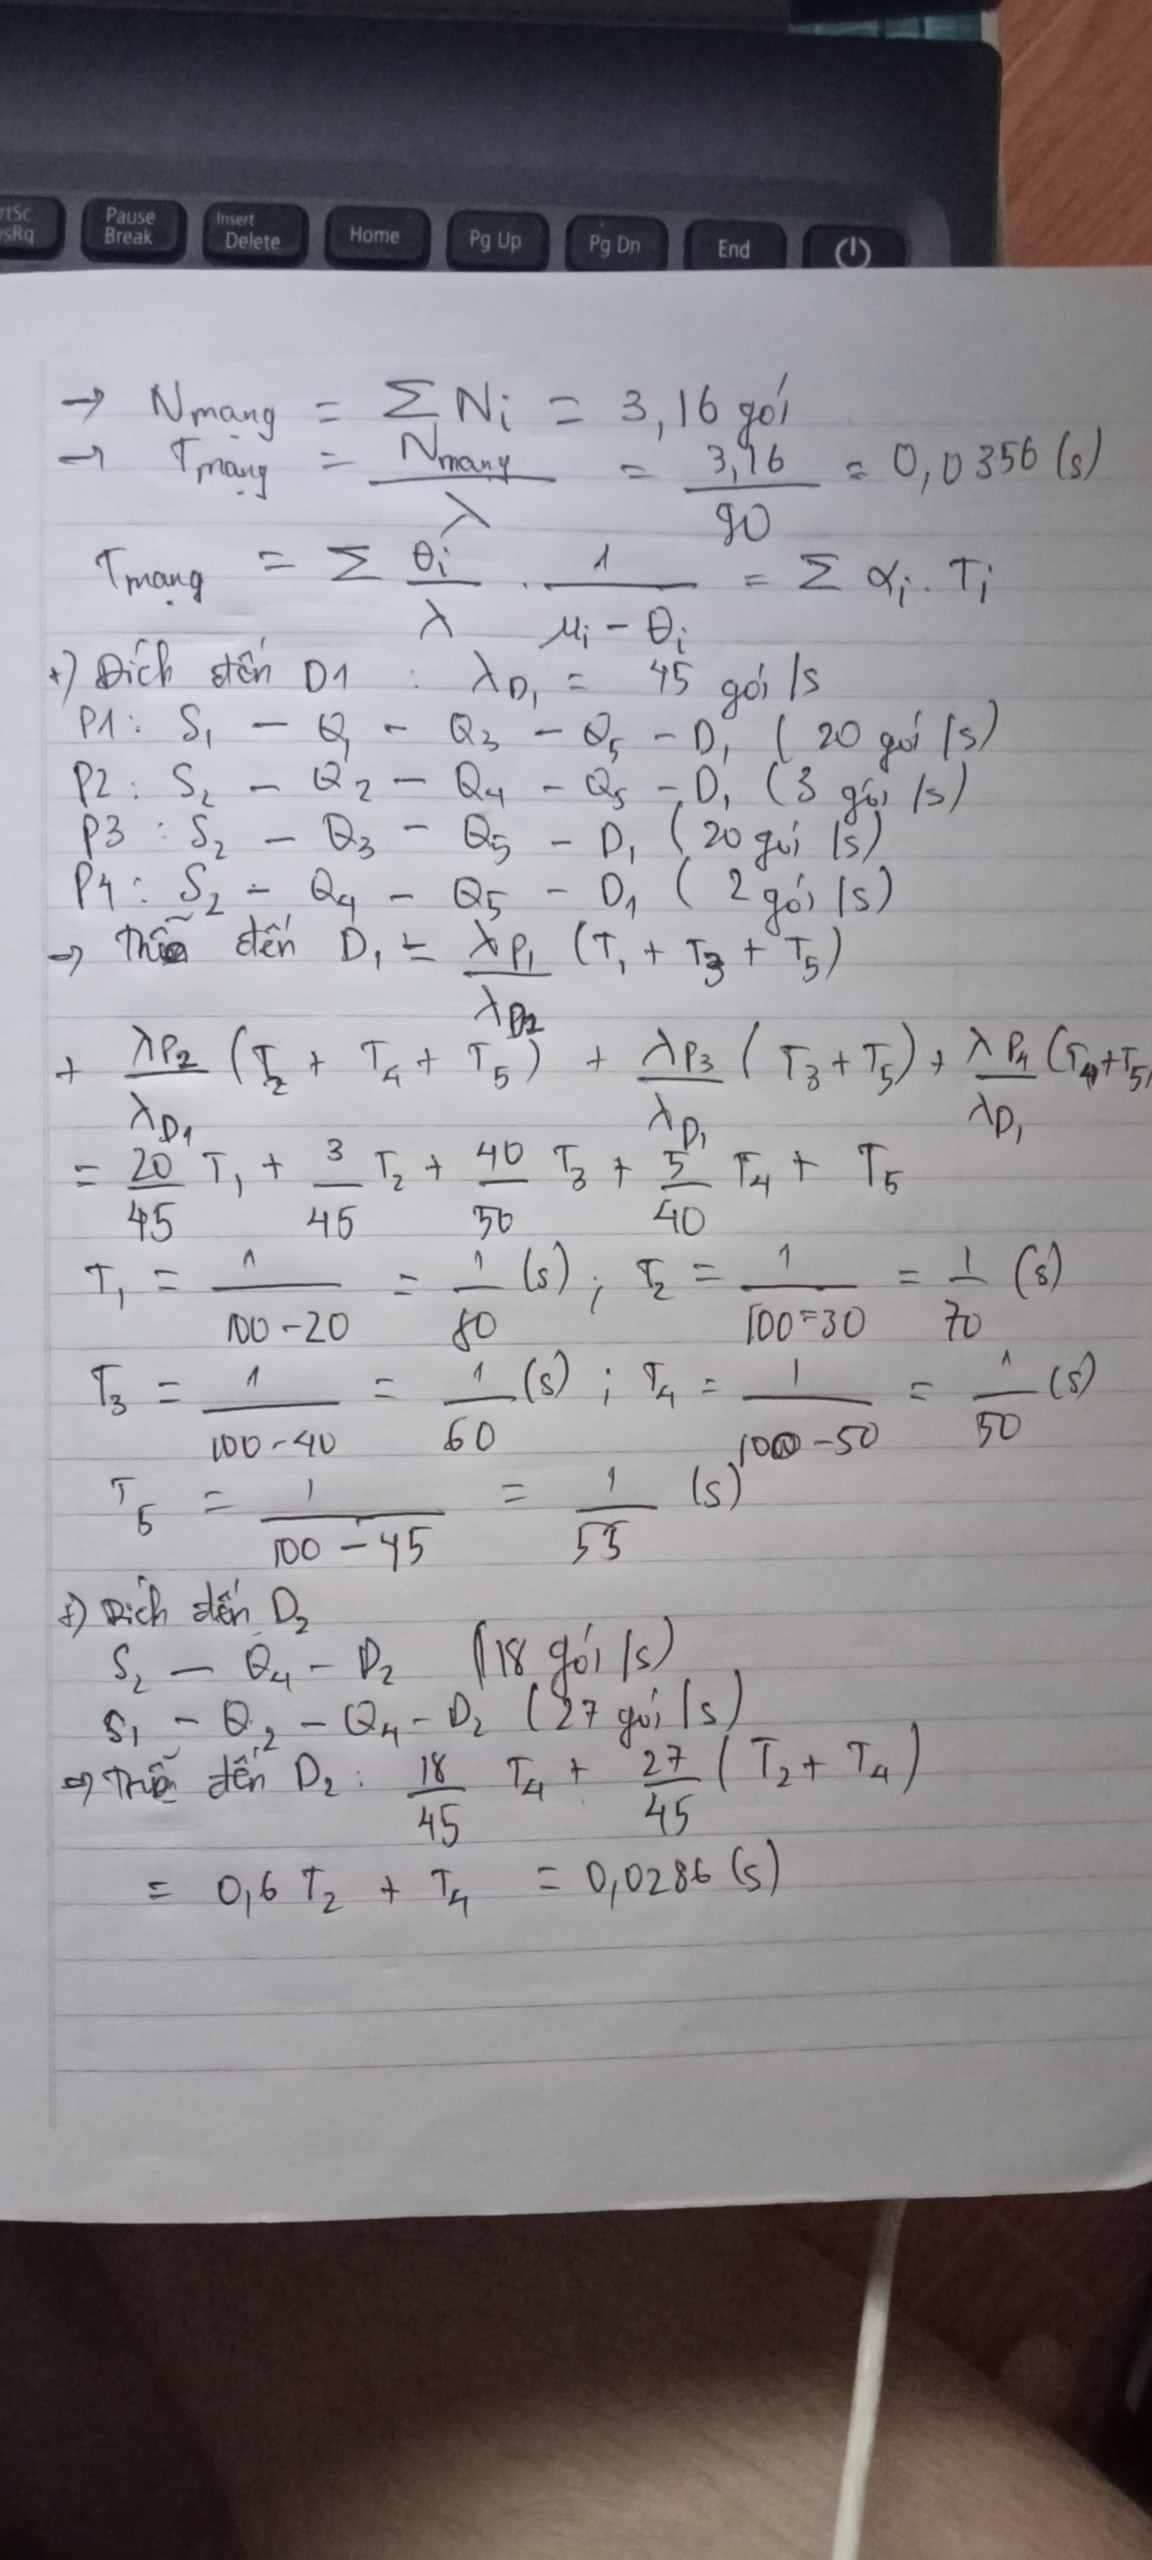 rtSc
ysRq
Pause
Break
Insert
Delete
Home
Pg Up
Pg Dn
End
→ Nmạng = Σ Ni = 3,16 gói
→ Tmạng = Nmạng / λ = 3,16 / 90 = 0,0356 (s)
Tmạng = Σ θi / λ . 1 / (μi - θi) = Σ αi . Ti
+) Đích đến D1 : λD1 = 45 gói /s
P1: S1 - Q1 - Q3 - Q5 - D1 (20 gói /s)
P2: S2 - Q2 - Q4 - Q5 - D1 (3 gói /s)
P3 : S2 - Q3 - Q5 - D1 (20 gói /s)
P4 : S2 - Q4 - Q5 - D1 (2 gói /s)
→ Trễ đến D1 = λP1 / λD2 (T1 + T3 + T5)
+ λP2 / λD1 (T2 + T4 + T5) + λP3 / λD1 (T3 + T5) + λP4 / λD1 (T4 + T5)
= 20/45 T1 + 3/45 T2 + 40/50 T3 + 5/40 T4 + T5
T1 = 1 / (100 - 20) = 1/80 (s) ; T2 = 1 / (100 - 30) = 1/70 (s)
T3 = 1 / (100 - 40) = 1/60 (s) ; T4 = 1 / (100 - 50) = 1/50 (s)
T5 = 1 / (100 - 45) = 1/55 (s)
+) Đích đến D2
S2 - Q4 - D2 (18 gói /s)
S1 - Q2 - Q4 - D2 (27 gói /s)
⇒ Trễ đến D2 : 18/45 T4 + 27/45 (T2 + T4)
= 0,6 T2 + T4 = 0,0286 (s)